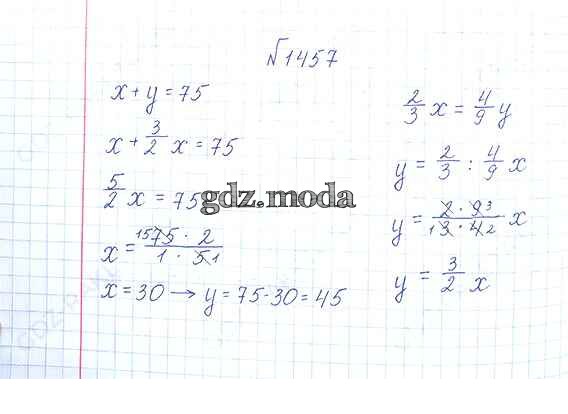 №1457
x + y = 75
x + 3/2 x = 75
5/2 x = 75
x = 15 75 · 2 / 1 · 5 1
x = 30 → y = 75 - 30 = 45
2/3 x = 4/9 y
y = 2/3 : 4/9 x
y = 2 · 9 3 / 1 3 · 4 2 x
y = 3/2 x
gdz.moda